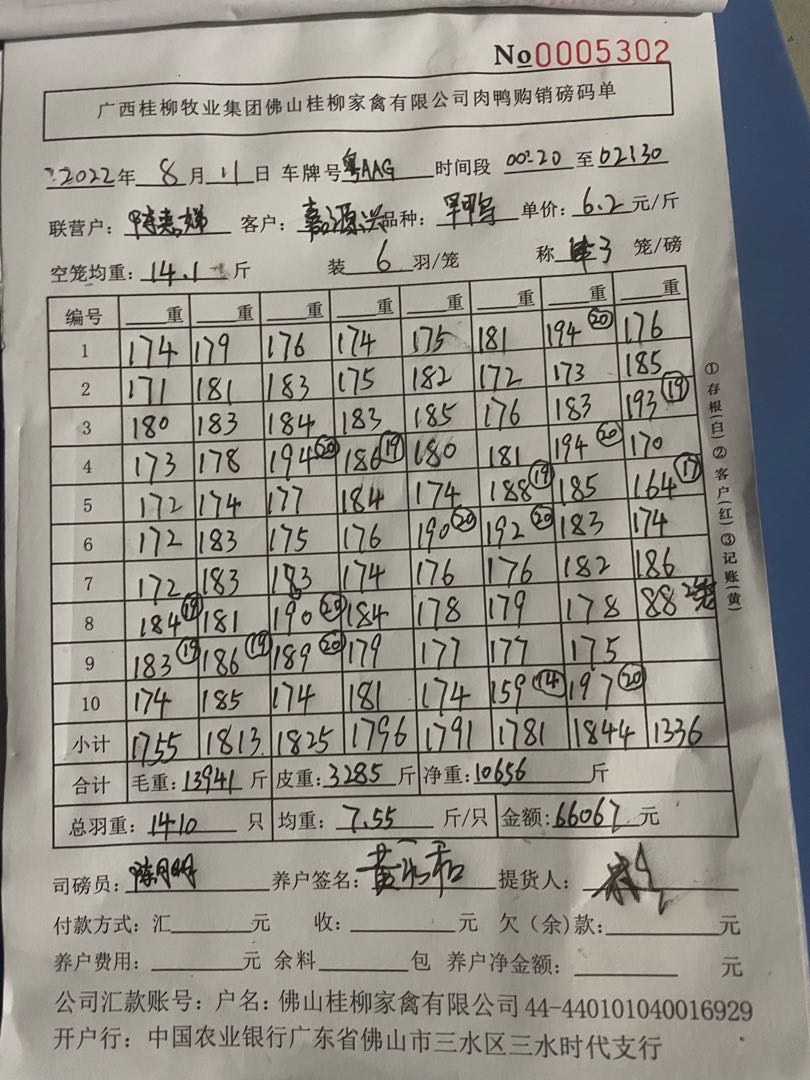 No0005302
广西桂柳牧业集团佛山桂柳家禽有限公司肉鸭购销磅码单
2022年 8月 11日 车牌号粤AAG 时间段 00:20 至 02:30
联营户: 客户: 嘉源兴 品种: 单价: 6.2 元/斤
空笼均重: 14.1 斤 装 6 羽/笼 称 笼/磅
编号 重 重 重 重 重 重 重 重
1 174 179 176 174 175 181 194⑳ 176
2 171 181 183 175 182 172 173 185
3 180 183 184 183 185 176 183 193⑲
4 173 178 194⑳ 186⑲ 180 181 194⑳ 170
5 172 174 177 184 174 188⑲ 185 164⑰
6 172 183 175 176 190⑳ 192⑳ 183 174
7 172 183 183 174 176 176 182 186
8 184⑲ 181 190⑳ 184 178 179 178 88
9 183⑲ 186⑲ 189⑳ 179 177 177 175
10 174 185 174 181 174 159⑭ 197⑳
小计 1755 1813 1825 1796 1791 1781 1844 1336
合计 毛重: 13941 斤 皮重: 3285 斤 净重: 10656 斤
总羽重: 1410 只 均重: 7.55 斤/只 金额: 66067 元
司磅员: 养户签名: 提货人:
付款方式: 汇 元 收: 元 欠（余）款: 元
养户费用: 元 余料 包 养户净金额: 元
公司汇款账号: 户名: 佛山桂柳家禽有限公司 44-440101040016929
开户行: 中国农业银行广东省佛山市三水区三水时代支行
①存根(白)②客户(红)③记账(黄)